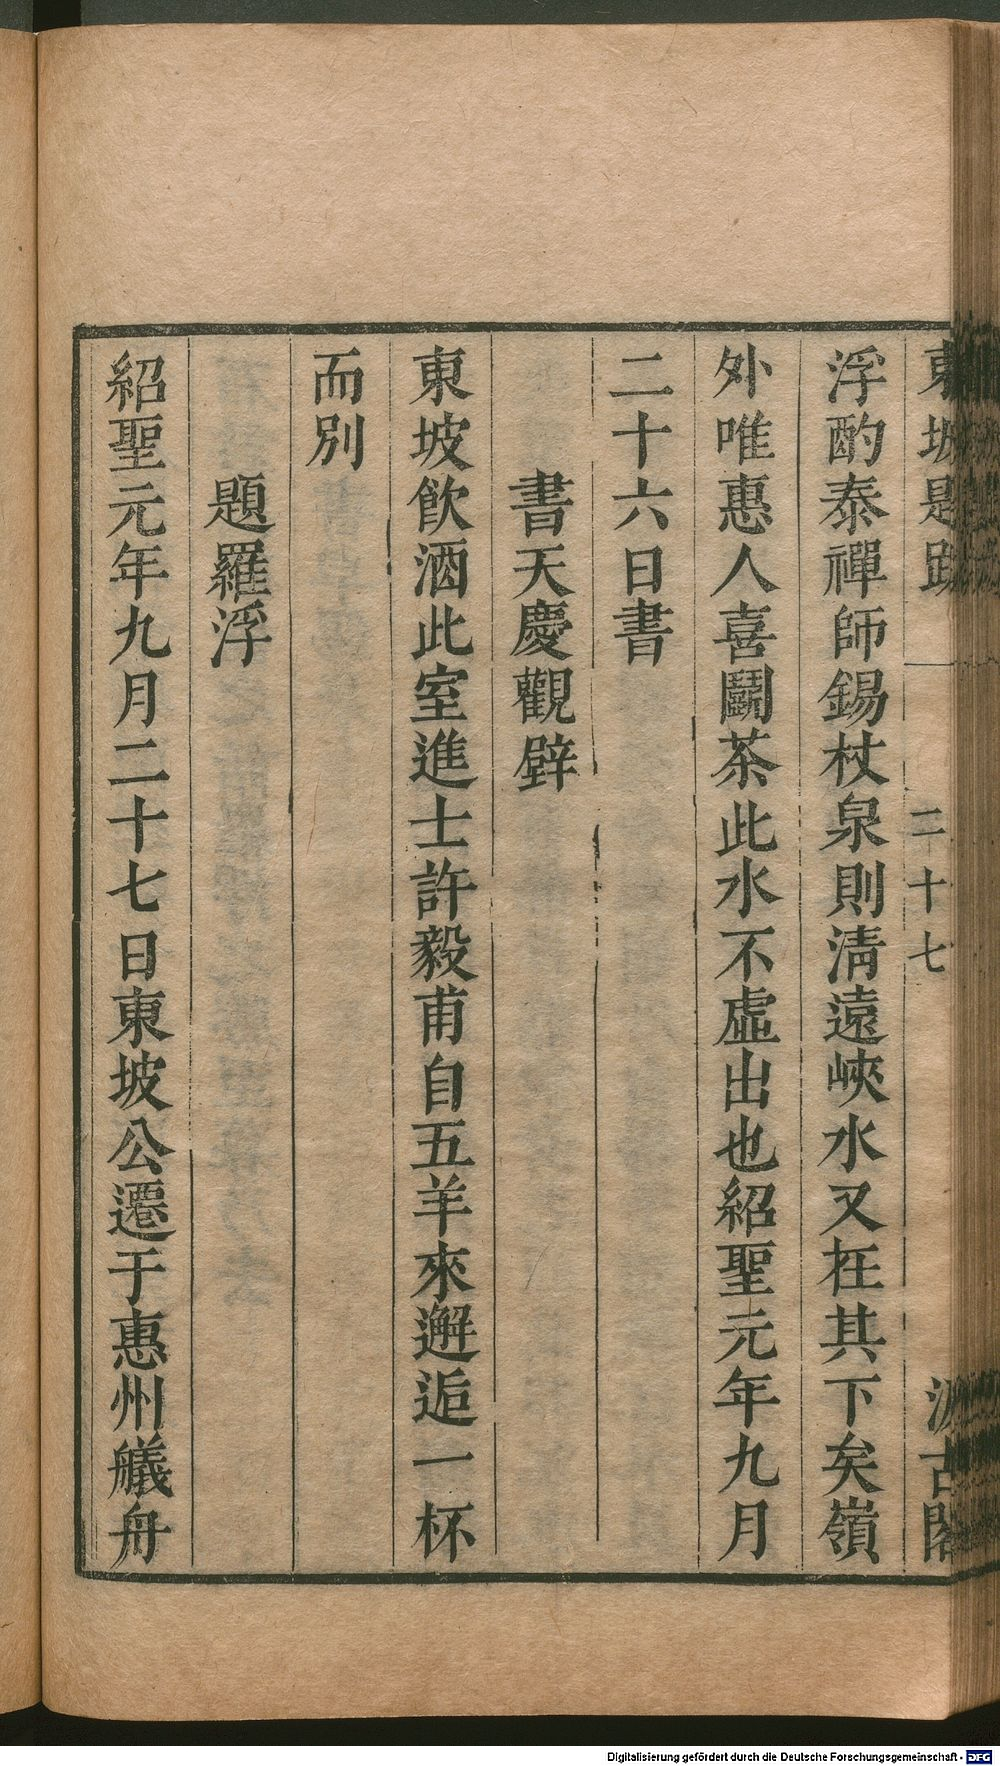 東坡題跋 二十七 汲古閣
浮酌泰禪師錫杖泉則清遠峽水又在其下矣嶺
外唯惠人喜鬭茶此水不虛出也紹聖元年九月
二十六日書
書天慶觀壁
東坡飮酒此室進士許毅甫自五羊來邂逅一杯
而別
題羅浮
紹聖元年九月二十七日東坡公遷于惠州艤舟
Digitalisierung gefördert durch die Deutsche Forschungsgemeinschaft - DFG